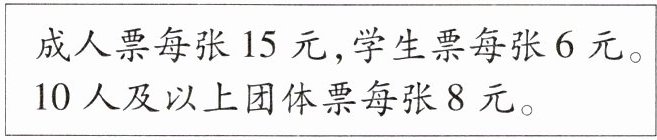 成人票每张15元,学生票每张6元。
10人及以上团体票每张8元。